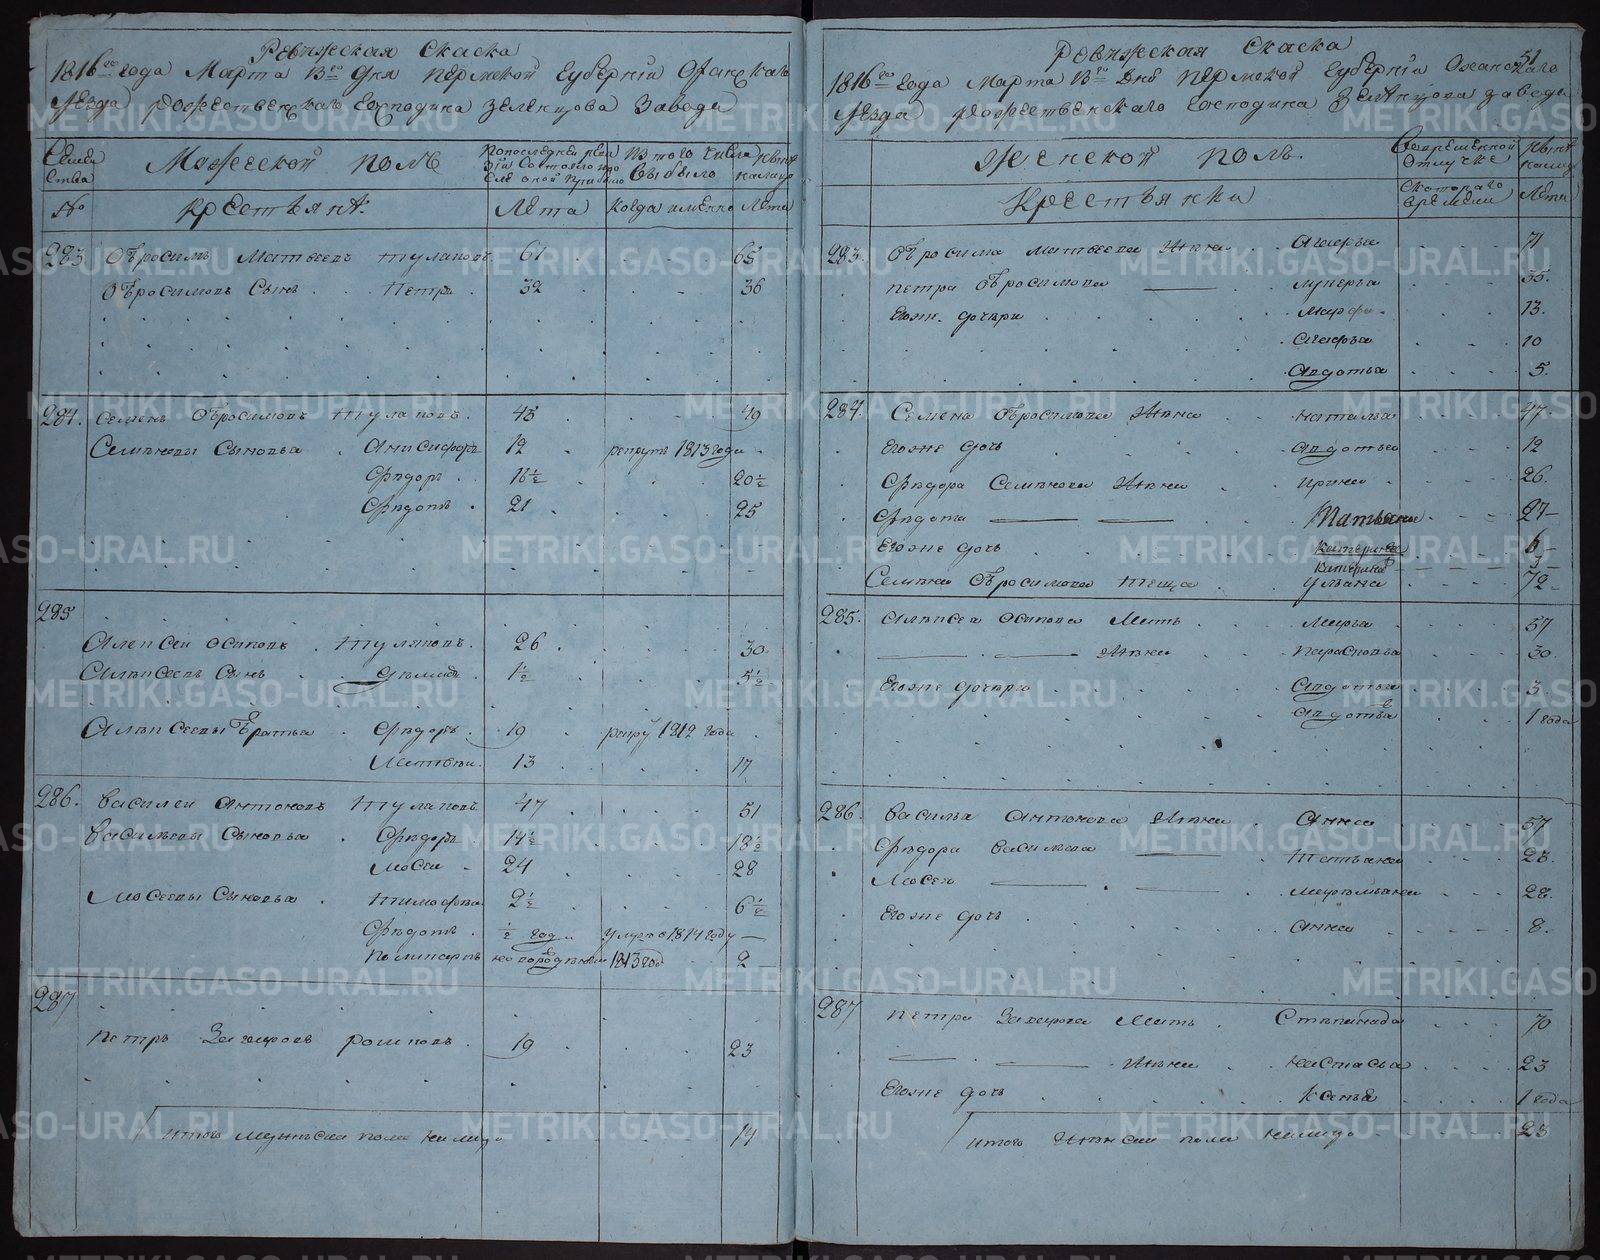 Ревижская Скаска
1816го года Марта 13го Дня Пермской Губернии Оханскаго
Уезда Рожественскаго Господина Зеленцова Завода
Мужеской полъ
Из того числа выбыло
ныне налицо
№ Крестьяне. Лета Когда именно Лета
283 Обросимъ Матвеевъ Тулаповъ 61 65
Обросимовъ Сынъ Петръ 32 36
284. Семенъ Обросимовъ Тулаповъ 45 49
Семеновы Сыновья Анисифоръ 12 рекрутъ 1813 года
Федоръ 16½ 20½
Федотъ 21 25
285
Алексей Осиповъ Тулаповъ 26 30
Алексеевъ Сынъ Демидъ 1½ 5½
Алексеевы Братья Федоръ 19 рекру 1812 года
Матвей 13 17
286. Василей Антоновъ Тулаповъ 47 51
Васильевы Сыновья Федоръ 14½ 18½
Мосей 24 28
Мосеевы Сыновья Тимофей 2½ 6½
Федотъ ½ года умре 1814 году —
Поликарпъ новорожденъ 1813 год 2
287
Петръ Захаровъ 19 23
Итого мужеска пола налицо 14
51
Ревижская Скаска
1816го Года Марта 13го Дня Пермской Губернии Оханскаго
Уезда Рожественскаго Господина Зеленцова завода
Женской полъ.
Во временной отлучке
ныне налицо
Крестьянки
С котораго времени
Лета
283. Обросима Матвеева Жена Агафья 71
Петра Обросимова — Лукерья 35.
Егоже дочери Марфа 13.
Агафья 10
Авдотья 5.
284. Семена Обросимова Жена Наталья 47.
Егоже дочь Авдотья 12
Федора Семенова Жена Ирина 26.
Федота — — Татьяна 27
Егоже дочь Катерина 6
Катерина 3
Семена Обросимова Теща Ульяна 72
285. Алексея Осипова Мать Марья 57
— — Жена Парасковья 30
Егоже дочери Авдотья 3
Авдотья 1 года
286. Василья Антонова Жена Анна 57
Федора Васильева — Татьяна 23.
Мосея — — Маремьяна 28.
Егоже дочь Анна 8.
287 Петра Захарова Мать Степанида 70
— — Жена Настасья 23
Егоже дочь 1 года
Итого Женска пола налицо 23
METRIKI.GASO-URAL.RU